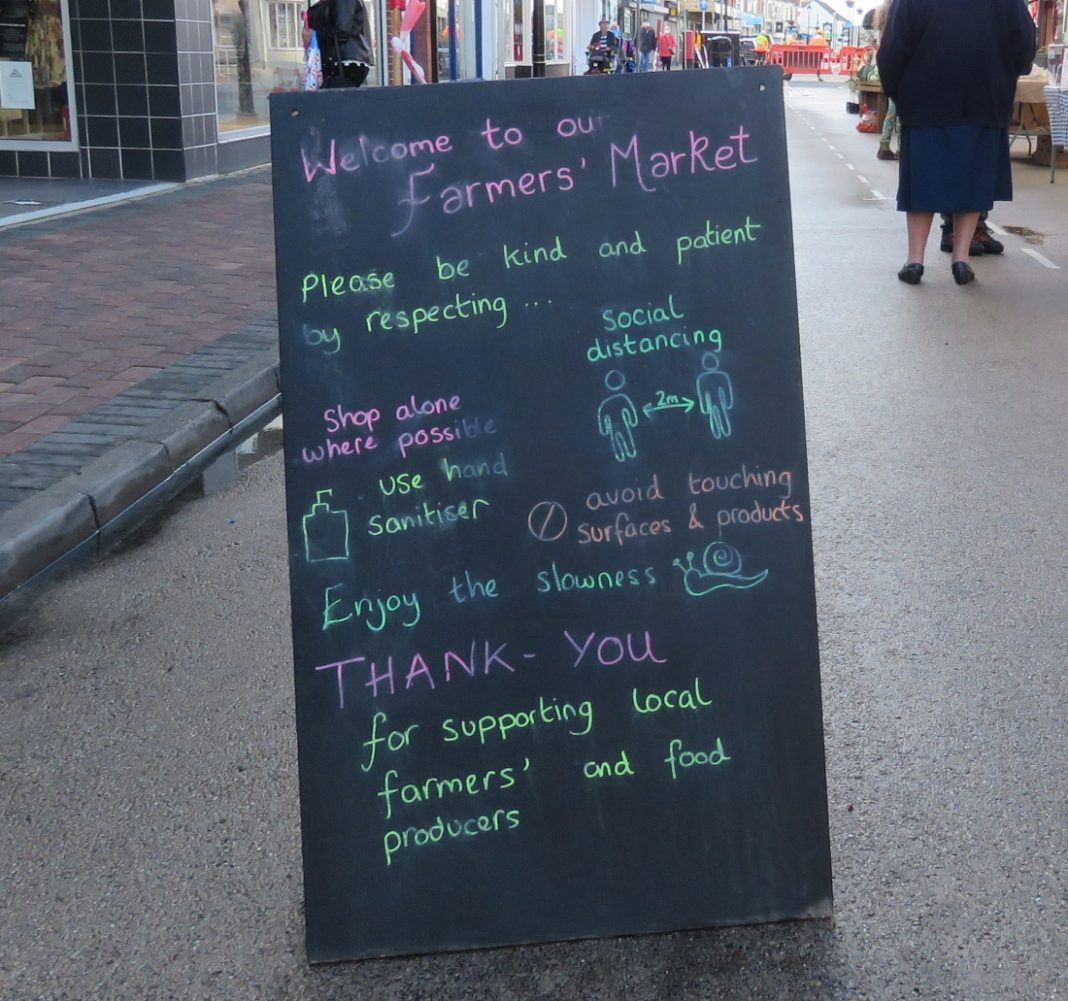 Welcome to our
Farmers' Market
Please be kind and patient
by respecting ...
Social
distancing
2m
Shop alone
where possible
use hand
sanitiser
avoid touching
surfaces & products
Enjoy the slowness
THANK-YOU
for supporting local
farmers' and food
producers